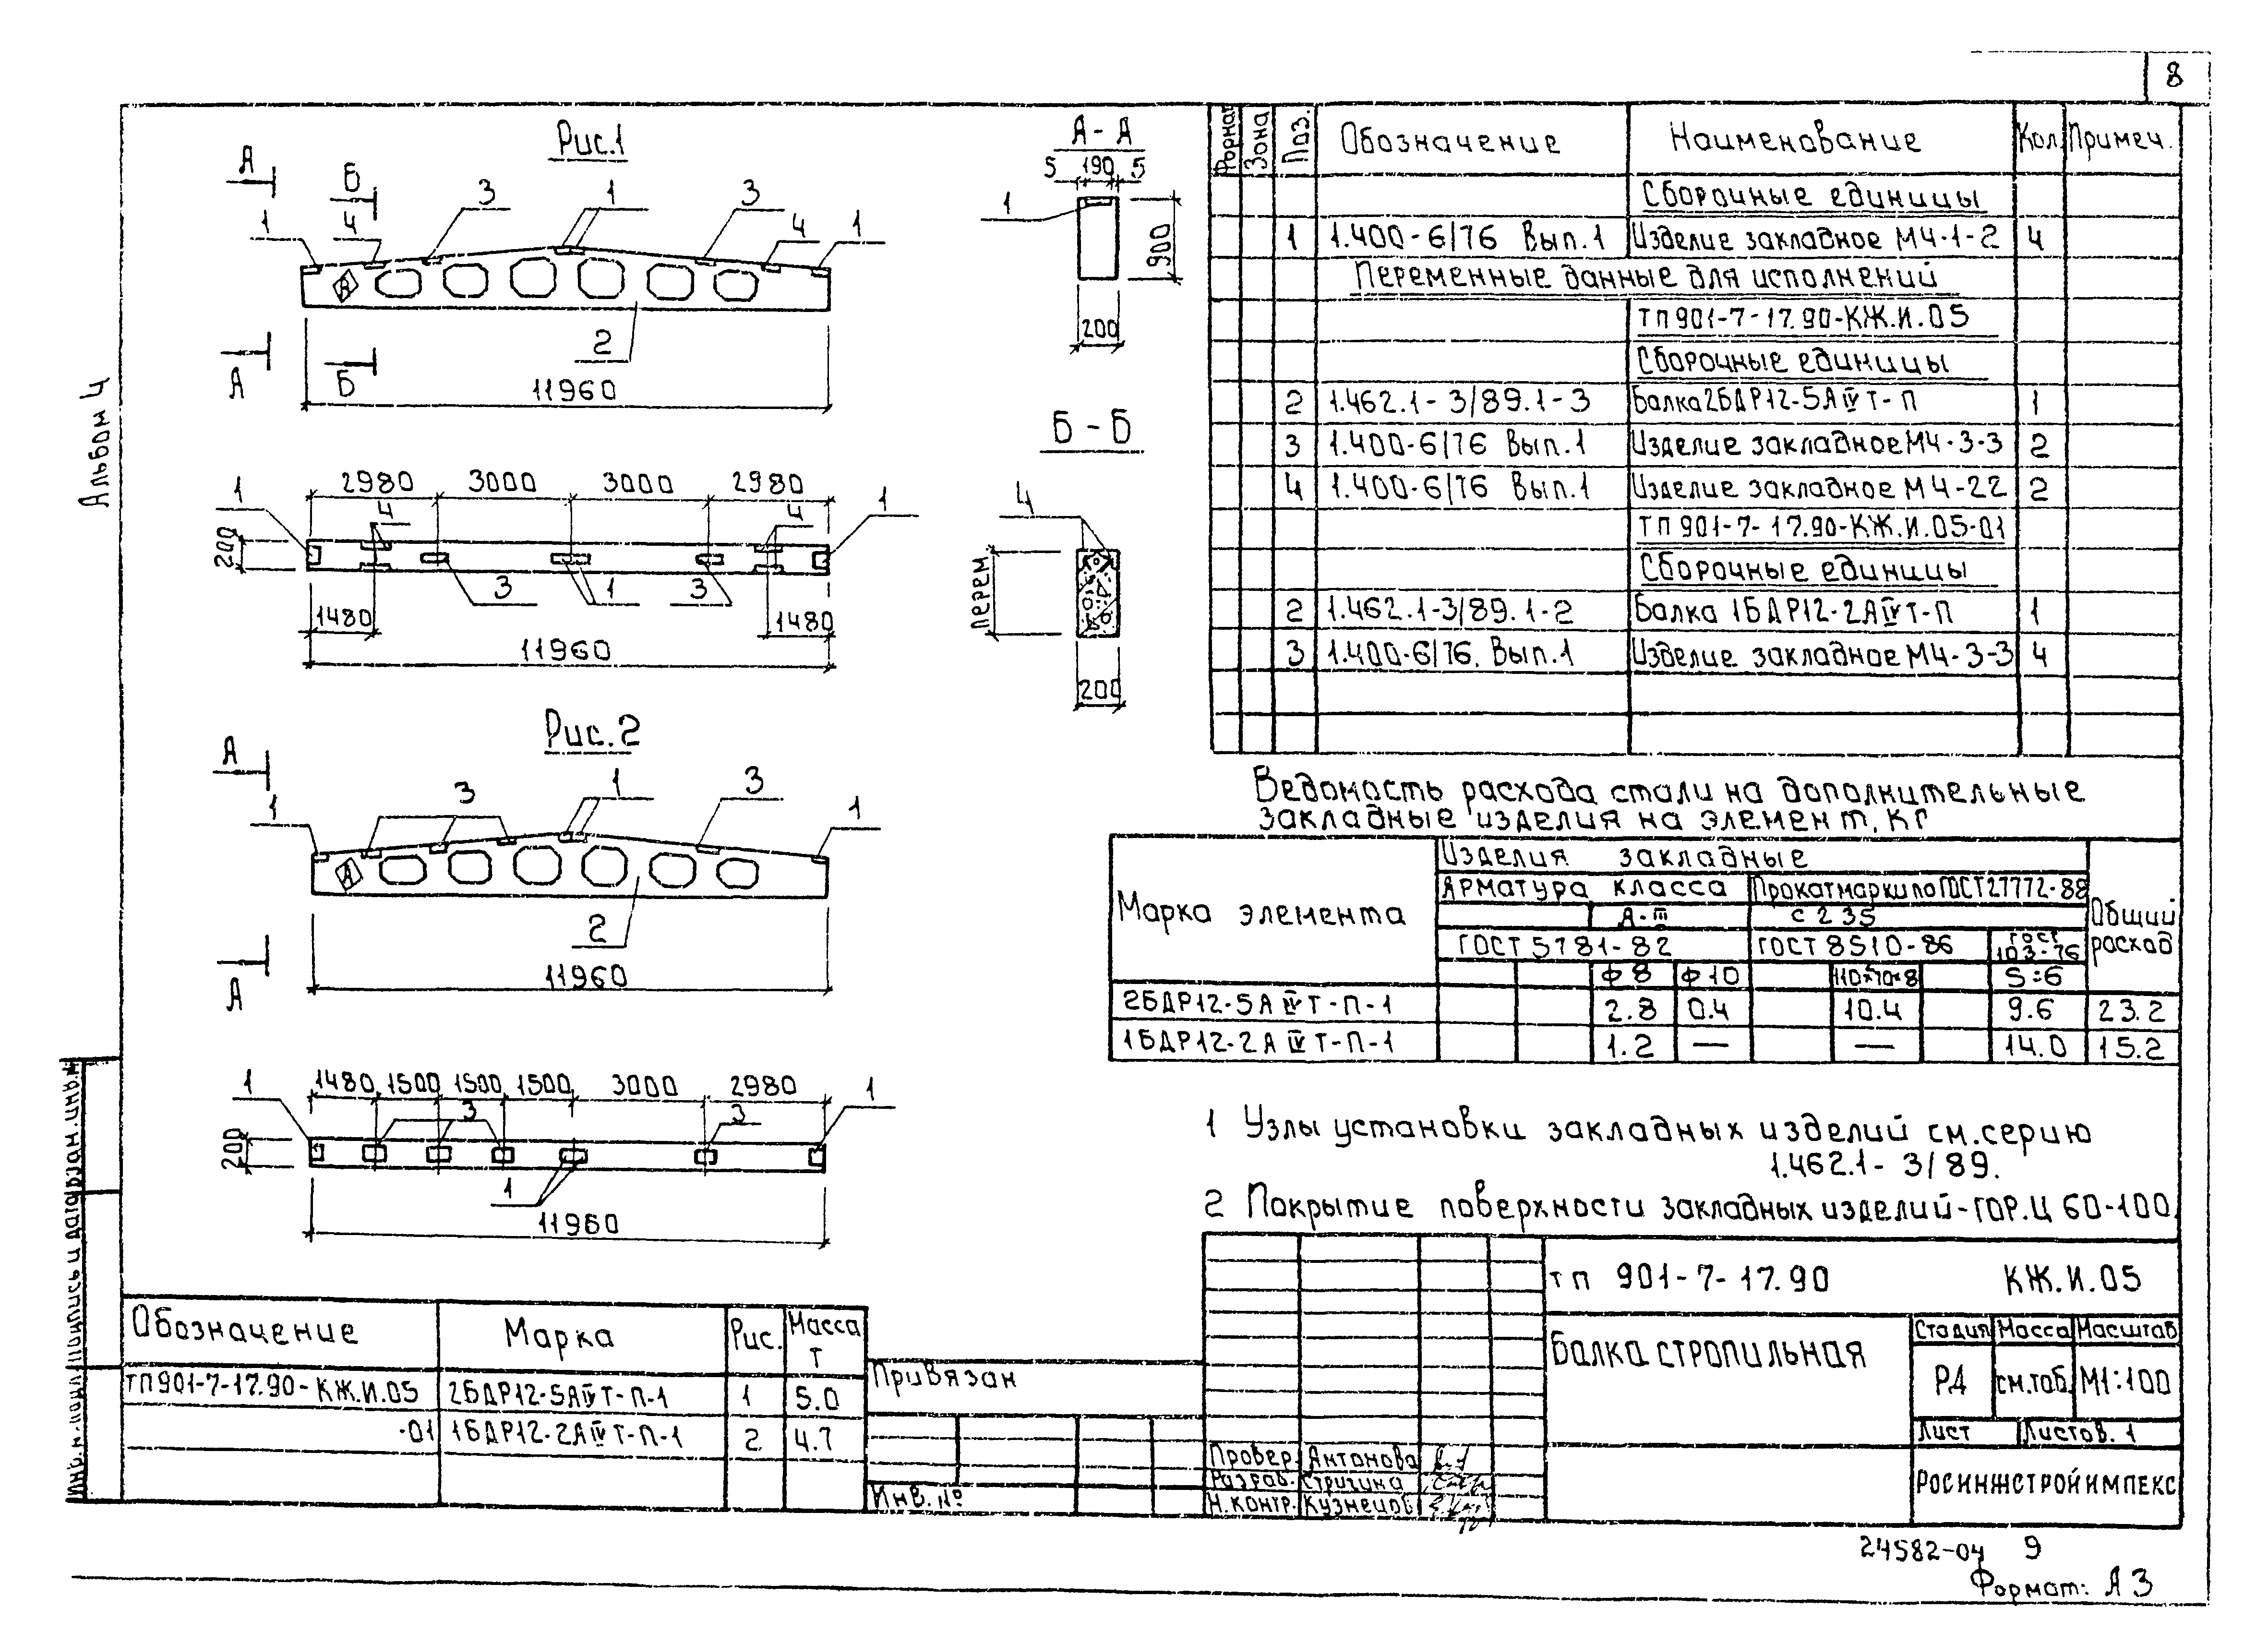 8
Альбом 4
Рис.1
А
Б
4
3
1
3
4
1
1
2
А
Б
11960
2980 3000 3000 2980
1
4
4
1
200
3 1 3
1480 1480
11960
А - А
5 190 5
1
900
200
Б - Б
4
перем
200
Рис. 2
А
1
3
1
3
1
2
А
11960
1480 1500 1500 1500 3000 2980
1
3
3
1
200
1
11960
Формат Зона Поз. Обозначение Наименование Кол Примеч.
Сборочные единицы
1 1.400-6/76 Вып.1 Изделие закладное М4-1-2 4
Переменные данные для исполнений
ТП901-7-17.90-КЖ.И.05
Сборочные единицы
2 1.462.1-3/89.1-3 Балка 2БДР12-5АIVТ-П 1
3 1.400-6/76 Вып.1 Изделие закладное М4-3-3 2
4 1.400-6/76 Вып.1 Изделие закладное М4-22 2
ТП901-7-17.90-КЖ.И.05-01
Сборочные единицы
2 1.462.1-3/89.1-2 Балка 1БДР12-2АIVТ-П 1
3 1.400-6/76. Вып.1 Изделие закладное М4-3-3 4
Ведомость расхода стали на дополнительные
закладные изделия на элемент, кг
Марка элемента
Изделия закладные
Арматура класса Прокат марки по ГОСТ27772-88
А-III С235
Общий расход
ГОСТ5781-82 ГОСТ8510-86 ГОСТ 103-76
ф8 ф10 110×70×8 S=6
2БДР12-5АIVТ-П-1 2.8 0.4 10.4 9.6 23.2
1БДР12-2АIVТ-П-1 1.2 — — 14.0 15.2
1 Узлы установки закладных изделий см.серию
1.462.1-3/89.
2 Покрытие поверхности закладных изделий-ГОР.Ц 60-100.
Обозначение Марка Рис. Масса т
ТП901-7-17.90-КЖ.И.05 2БДР12-5АIVТ-П-1 1 5.0
-01 1БДР12-2АIVТ-П-1 2 4.7
Привязан
Инв. №
ТП 901-7-17.90 КЖ.И.05
Балка стропильная
Стадия Масса Масштаб
РД см.таб. М1:100
Лист Листов. 1
Росинжстройимпекс
Провер. Антонова
Разраб. Стригина
Н.контр. Кузнецов
Инв.№ подл. Подпись и дата Взам.инв.№
24582-04 9
Формат: А3